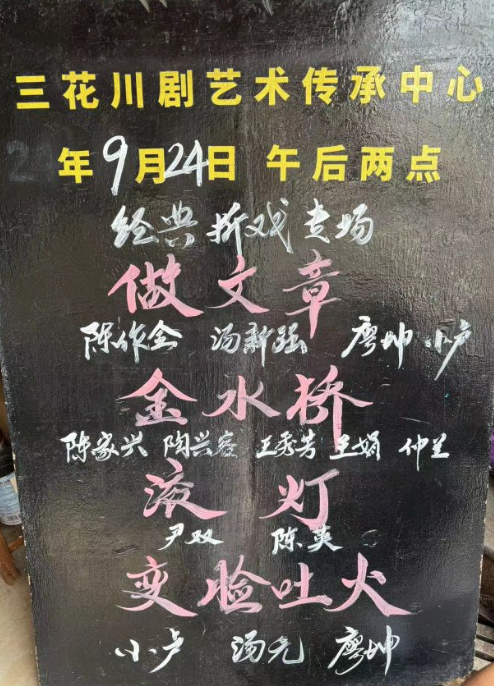 三花川剧艺术传承中心
年9月24日 午后两点
经典折戏专场
做文章
陈作全 汤新强 廖坤 小卢
金水桥
陈家兴 陶兴容 王秀芳 王娟 仲兰
滚灯
尹双 陈英
变脸吐火
小卢 汤元 廖坤